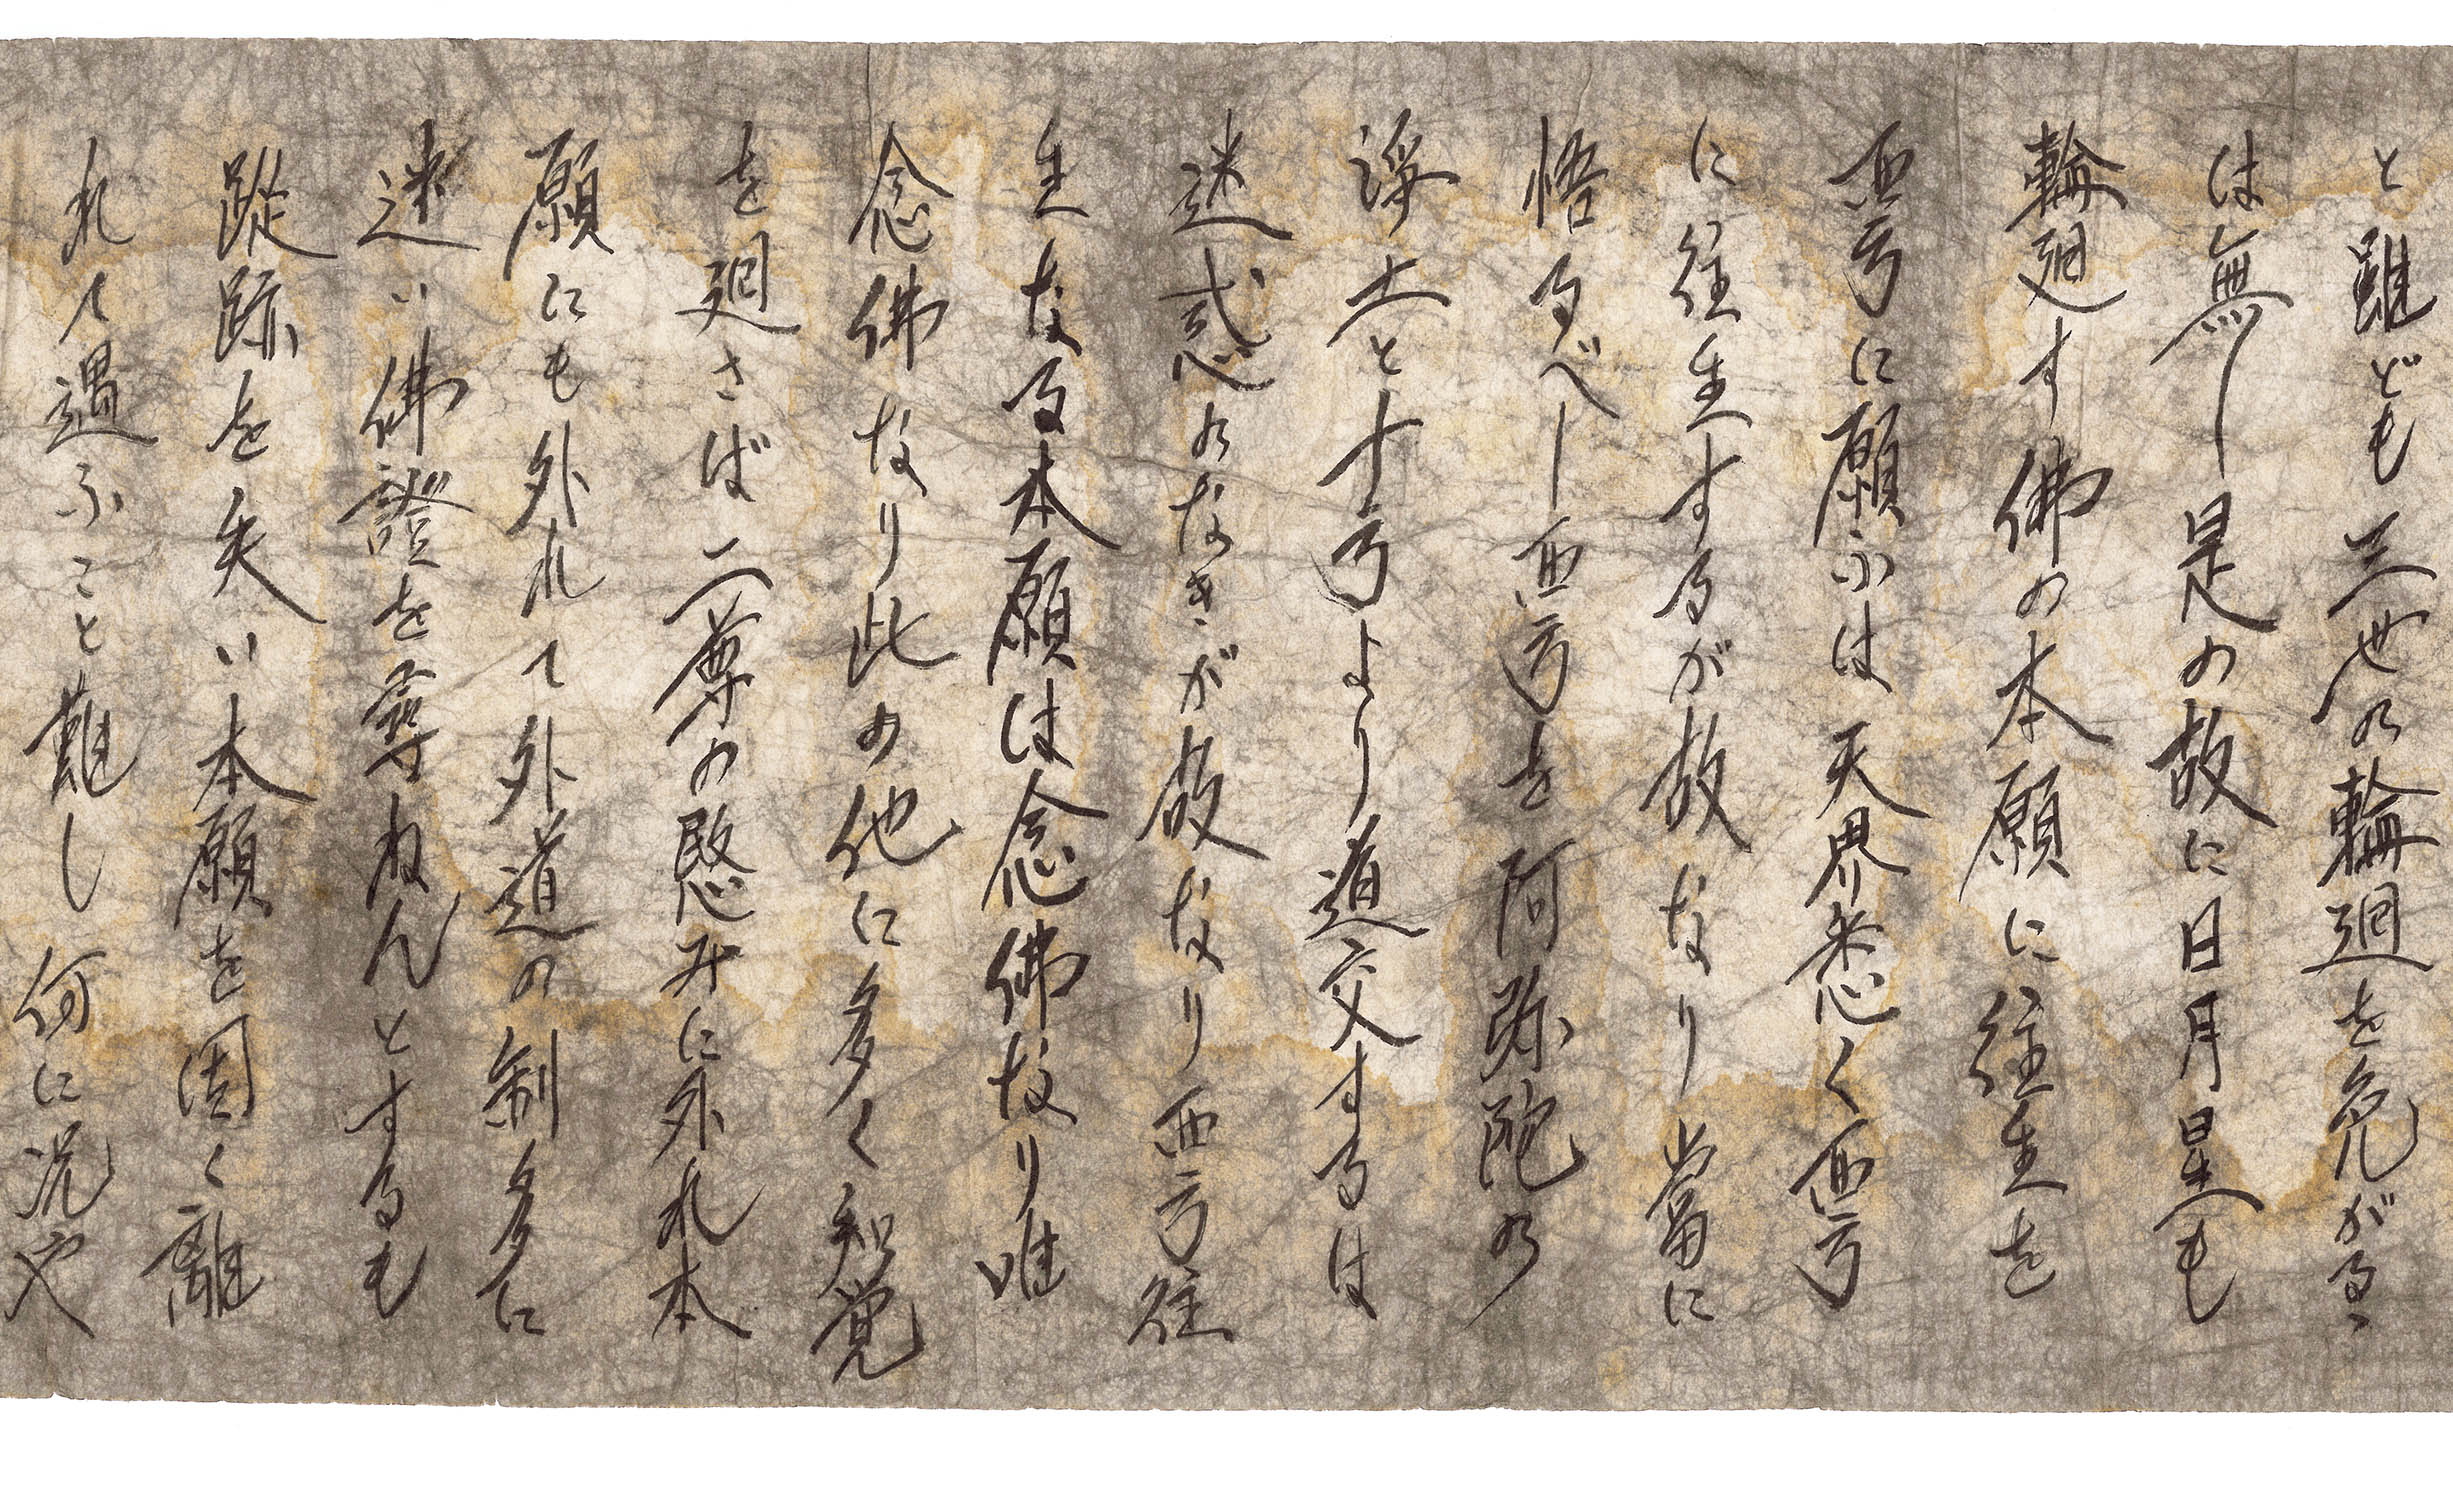 と雖ども三世の輪廻を免がるゝ
は無し是の故に日月星も
輪廻す佛の本願に往生を
西方に願ふは天界悉く西方
に往生するが故なり當に
悟るべし西方を阿弥陀の
淨土と十方より道交するは
迷惑のなきが故なり西方往
生なる本願は念佛なり唯
念佛なり此の他に多く知覚
を廻さば二尊の愍みに外れ本
願にも外れて外道の制多に
迷い佛證を尋ねんとするも
蹤跡を失い本願を固く離
れて遇ふこと難し何に況や